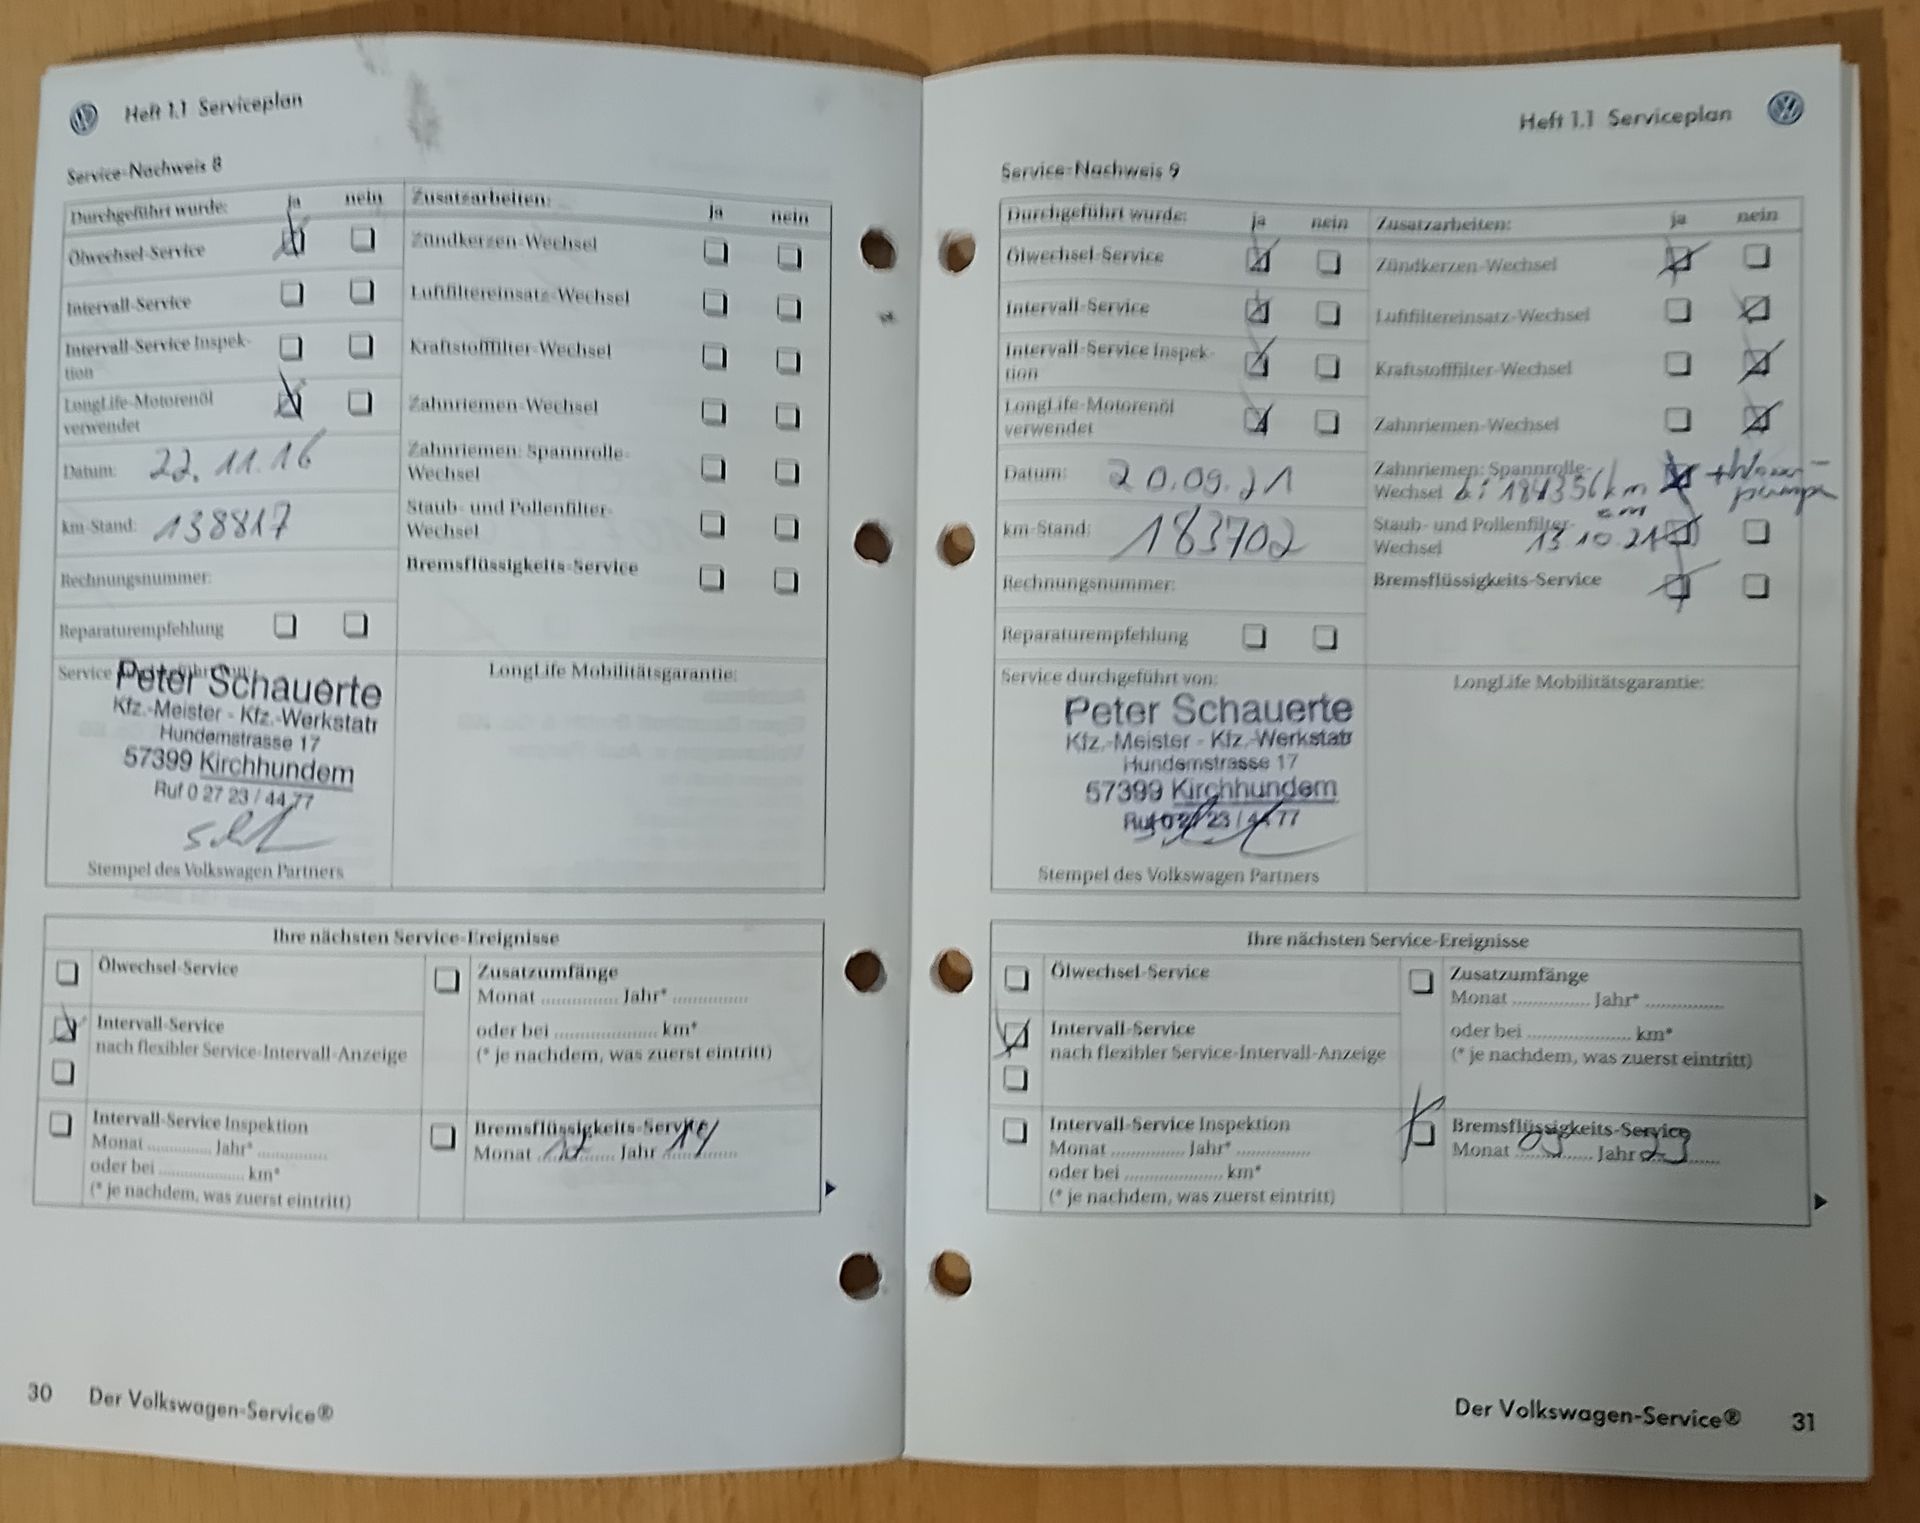 Heft 1.1 Serviceplan
Service-Nachweis 8
Durchgeführt wurde: ja nein
Ölwechsel-Service
Intervall-Service
Intervall-Service Inspek-
tion
LongLife-Motorenöl
verwendet
Datum: 22.11.16
km-Stand: 138817
Rechnungsnummer:
Reparaturempfehlung
Zusatzarbeiten: ja nein
Zündkerzen-Wechsel
Luftfiltereinsatz-Wechsel
Kraftstofffilter-Wechsel
Zahnriemen-Wechsel
Zahnriemen: Spannrolle-
Wechsel
Staub- und Pollenfilter-
Wechsel
Bremsflüssigkeits-Service
Service
Peter Schauerte
Kfz.-Meister - Kfz.-Werkstatt
Hundemstrasse 17
57399 Kirchhundem
Ruf 0 27 23 / 44 77
Stempel des Volkswagen Partners
LongLife Mobilitätsgarantie:
Ihre nächsten Service-Ereignisse
Ölwechsel-Service
Intervall-Service
nach flexibler Service-Intervall-Anzeige
Intervall-Service Inspektion
Monat ............ Jahr* ............
oder bei ................. km*
(* je nachdem, was zuerst eintritt)
Zusatzumfänge
Monat ............ Jahr* ............
oder bei ................. km*
(* je nachdem, was zuerst eintritt)
Bremsflüssigkeits-Service
Monat Jahr
30 Der Volkswagen-Service®
Heft 1.1 Serviceplan
Service-Nachweis 9
Durchgeführt wurde: ja nein
Ölwechsel-Service
Intervall-Service
Intervall-Service Inspek-
tion
LongLife-Motorenöl
verwendet
Datum: 20.09.21
km-Stand: 183702
Rechnungsnummer:
Reparaturempfehlung
Zusatzarbeiten: ja nein
Zündkerzen-Wechsel
Luftfiltereinsatz-Wechsel
Kraftstofffilter-Wechsel
Zahnriemen-Wechsel
Zahnriemen: Spannrolle-
Wechsel bei 184356 km
pumpe
am
Staub- und Pollenfilter-
Wechsel 13.10.21
Bremsflüssigkeits-Service
Service durchgeführt von:
Peter Schauerte
Kfz.-Meister - Kfz.-Werkstatt
Hundemstrasse 17
57399 Kirchhundem
Ruf 0 27 23 / 44 77
Stempel des Volkswagen Partners
LongLife Mobilitätsgarantie:
Ihre nächsten Service-Ereignisse
Ölwechsel-Service
Intervall-Service
nach flexibler Service-Intervall-Anzeige
Intervall-Service Inspektion
Monat ............ Jahr* ............
oder bei ................. km*
(* je nachdem, was zuerst eintritt)
Zusatzumfänge
Monat ............ Jahr* ............
oder bei ................. km*
(* je nachdem, was zuerst eintritt)
Bremsflüssigkeits-Service
Monat 09 Jahr 23
Der Volkswagen-Service® 31